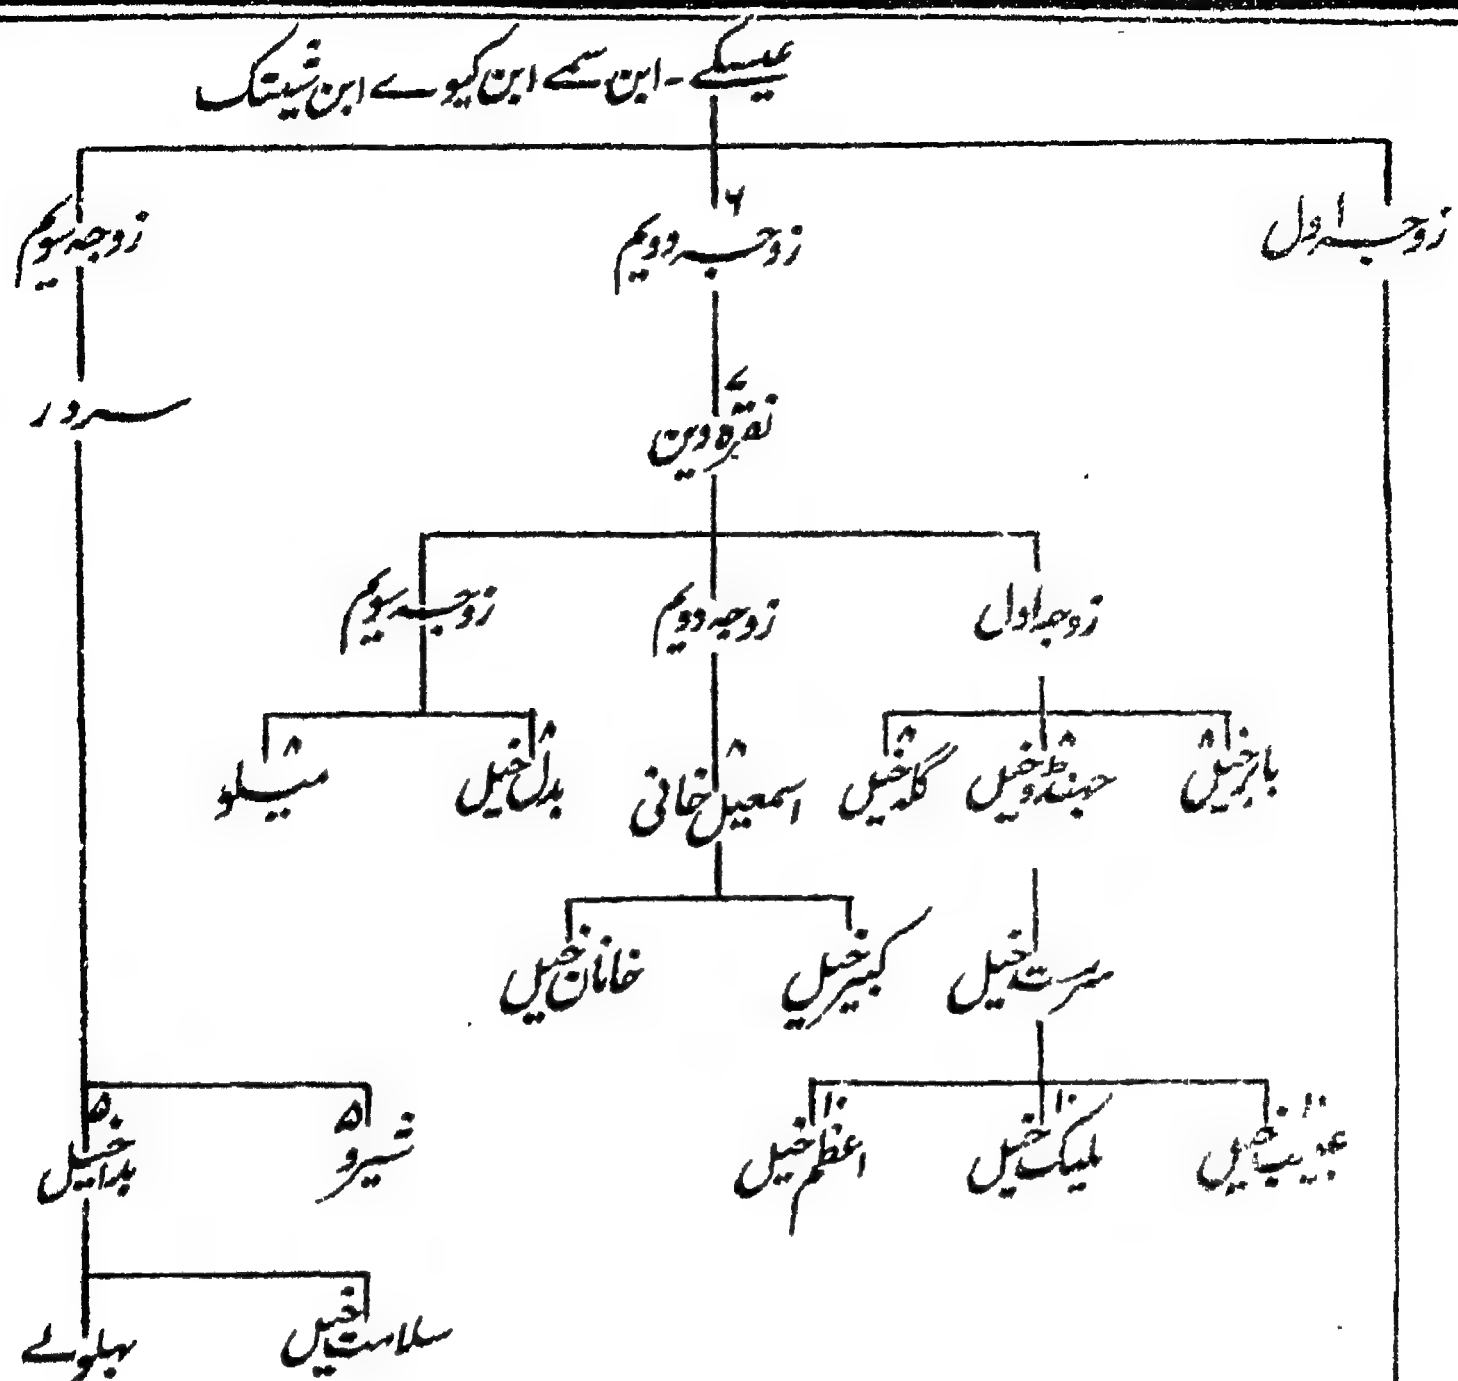 عیسکے - ابن سمے ابن کیوے ابن شیتک
زوجہ اول زوجہ دویم ۶ زوجہ سویم
نقرہ دین ۷ سرور
زوجہ اول زوجہ دویم زوجہ سویم
بابر خیل ۸ جھنڈو خیل ۸ گلہ خیل ۸ اسمعیل خانی ۸ بدل خیل ۸ میلو ۸
سرست خیل کبیر خیل خانان خیل
خیل ۱۰ ملیک خیل ۱۰ اعظم خیل ۱۰ شیرو ۵ بدا خیل ۵
سلامت خیل بہلولے